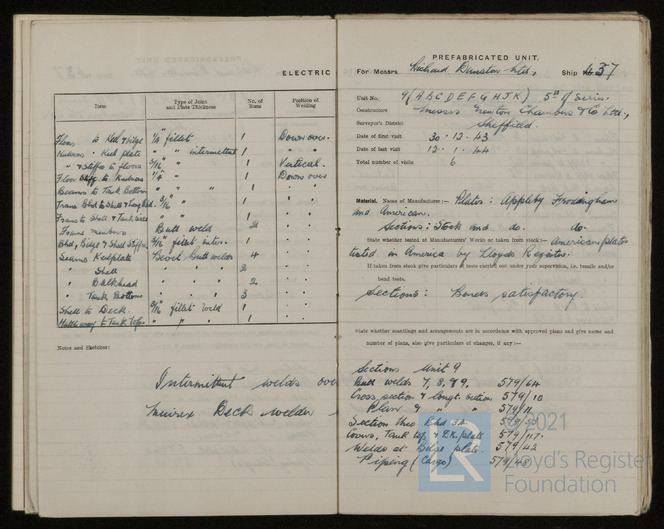 ELECTRIC
Item
Type of Joint and Plate Thickness
No. of Runs
Position of Welding
Floors to Keel & bilge 1/4" fillet 1 Downover.
Keel plate " intermittent 1 " "
" & Stiffrs to floors 3/16 " " 1 Vertical.
Floor Stiff to 1/4 " " 1 Downover
Beams to Tank Bottom " " 1 " "
Trans Bhd to Shell & Long Bhd. 3/16 " " 1 " "
Frames to Shell & Tank " " 1 " "
Frame members Butt weld 2 " "
Bhd, Bilge & Shell Stiffrs 3/16" fillet inter. 1 " "
Seams Keelplate Bevel Butt welds 4 " "
" Shell " " " 2
" Bulkhead " " " 2 " "
" Tank Bottoms " " " 3
Shell to Deck. 3/16 fillet weld 1
Hatchway to Tank Tops " " " 1
Notes and Sketches:
Intermittent welds over
Murex Deck welder
PREFABRICATED UNIT.
For Messrs. Richard Dunston Ltd, Ship 437
Unit No. 9 (A B C D E F G H J K) 5th of Series.
Constructors Messrs Newton Chambers & Co Ltd,
Surveyor's District Sheffield.
Date of first visit 30 . 12 . 43
Date of last visit 12 . 1 . 44
Total number of visits 6
Material. Name of Manufacturer:- Plates: Appleby Frodingham
and American.
Sections: Stock and do. do.
State whether tested at Manufacturers' Works or taken from stock:- American plates
tested in America by Lloyds Register.
If taken from stock give particulars of tests carried out under your supervision, i.e. tensile and/or
bend tests.
Sections: Bends satisfactory.
State whether scantlings and arrangements are in accordance with approved plans and give name and
number of plans, also give particulars of changes, if any:-
Sections Unit 9
Butt welds 7, 8, & 9. 579/64
Cross section & longt. section 579/10
Plan 9 " " 579/11
Section thro Bhd 32
Covers, Tank top & D.K. plate 579/117.
Welds at Bilge plate. 579/42
Piping (Cargo)
© 2021
Lloyd's Register
Foundation